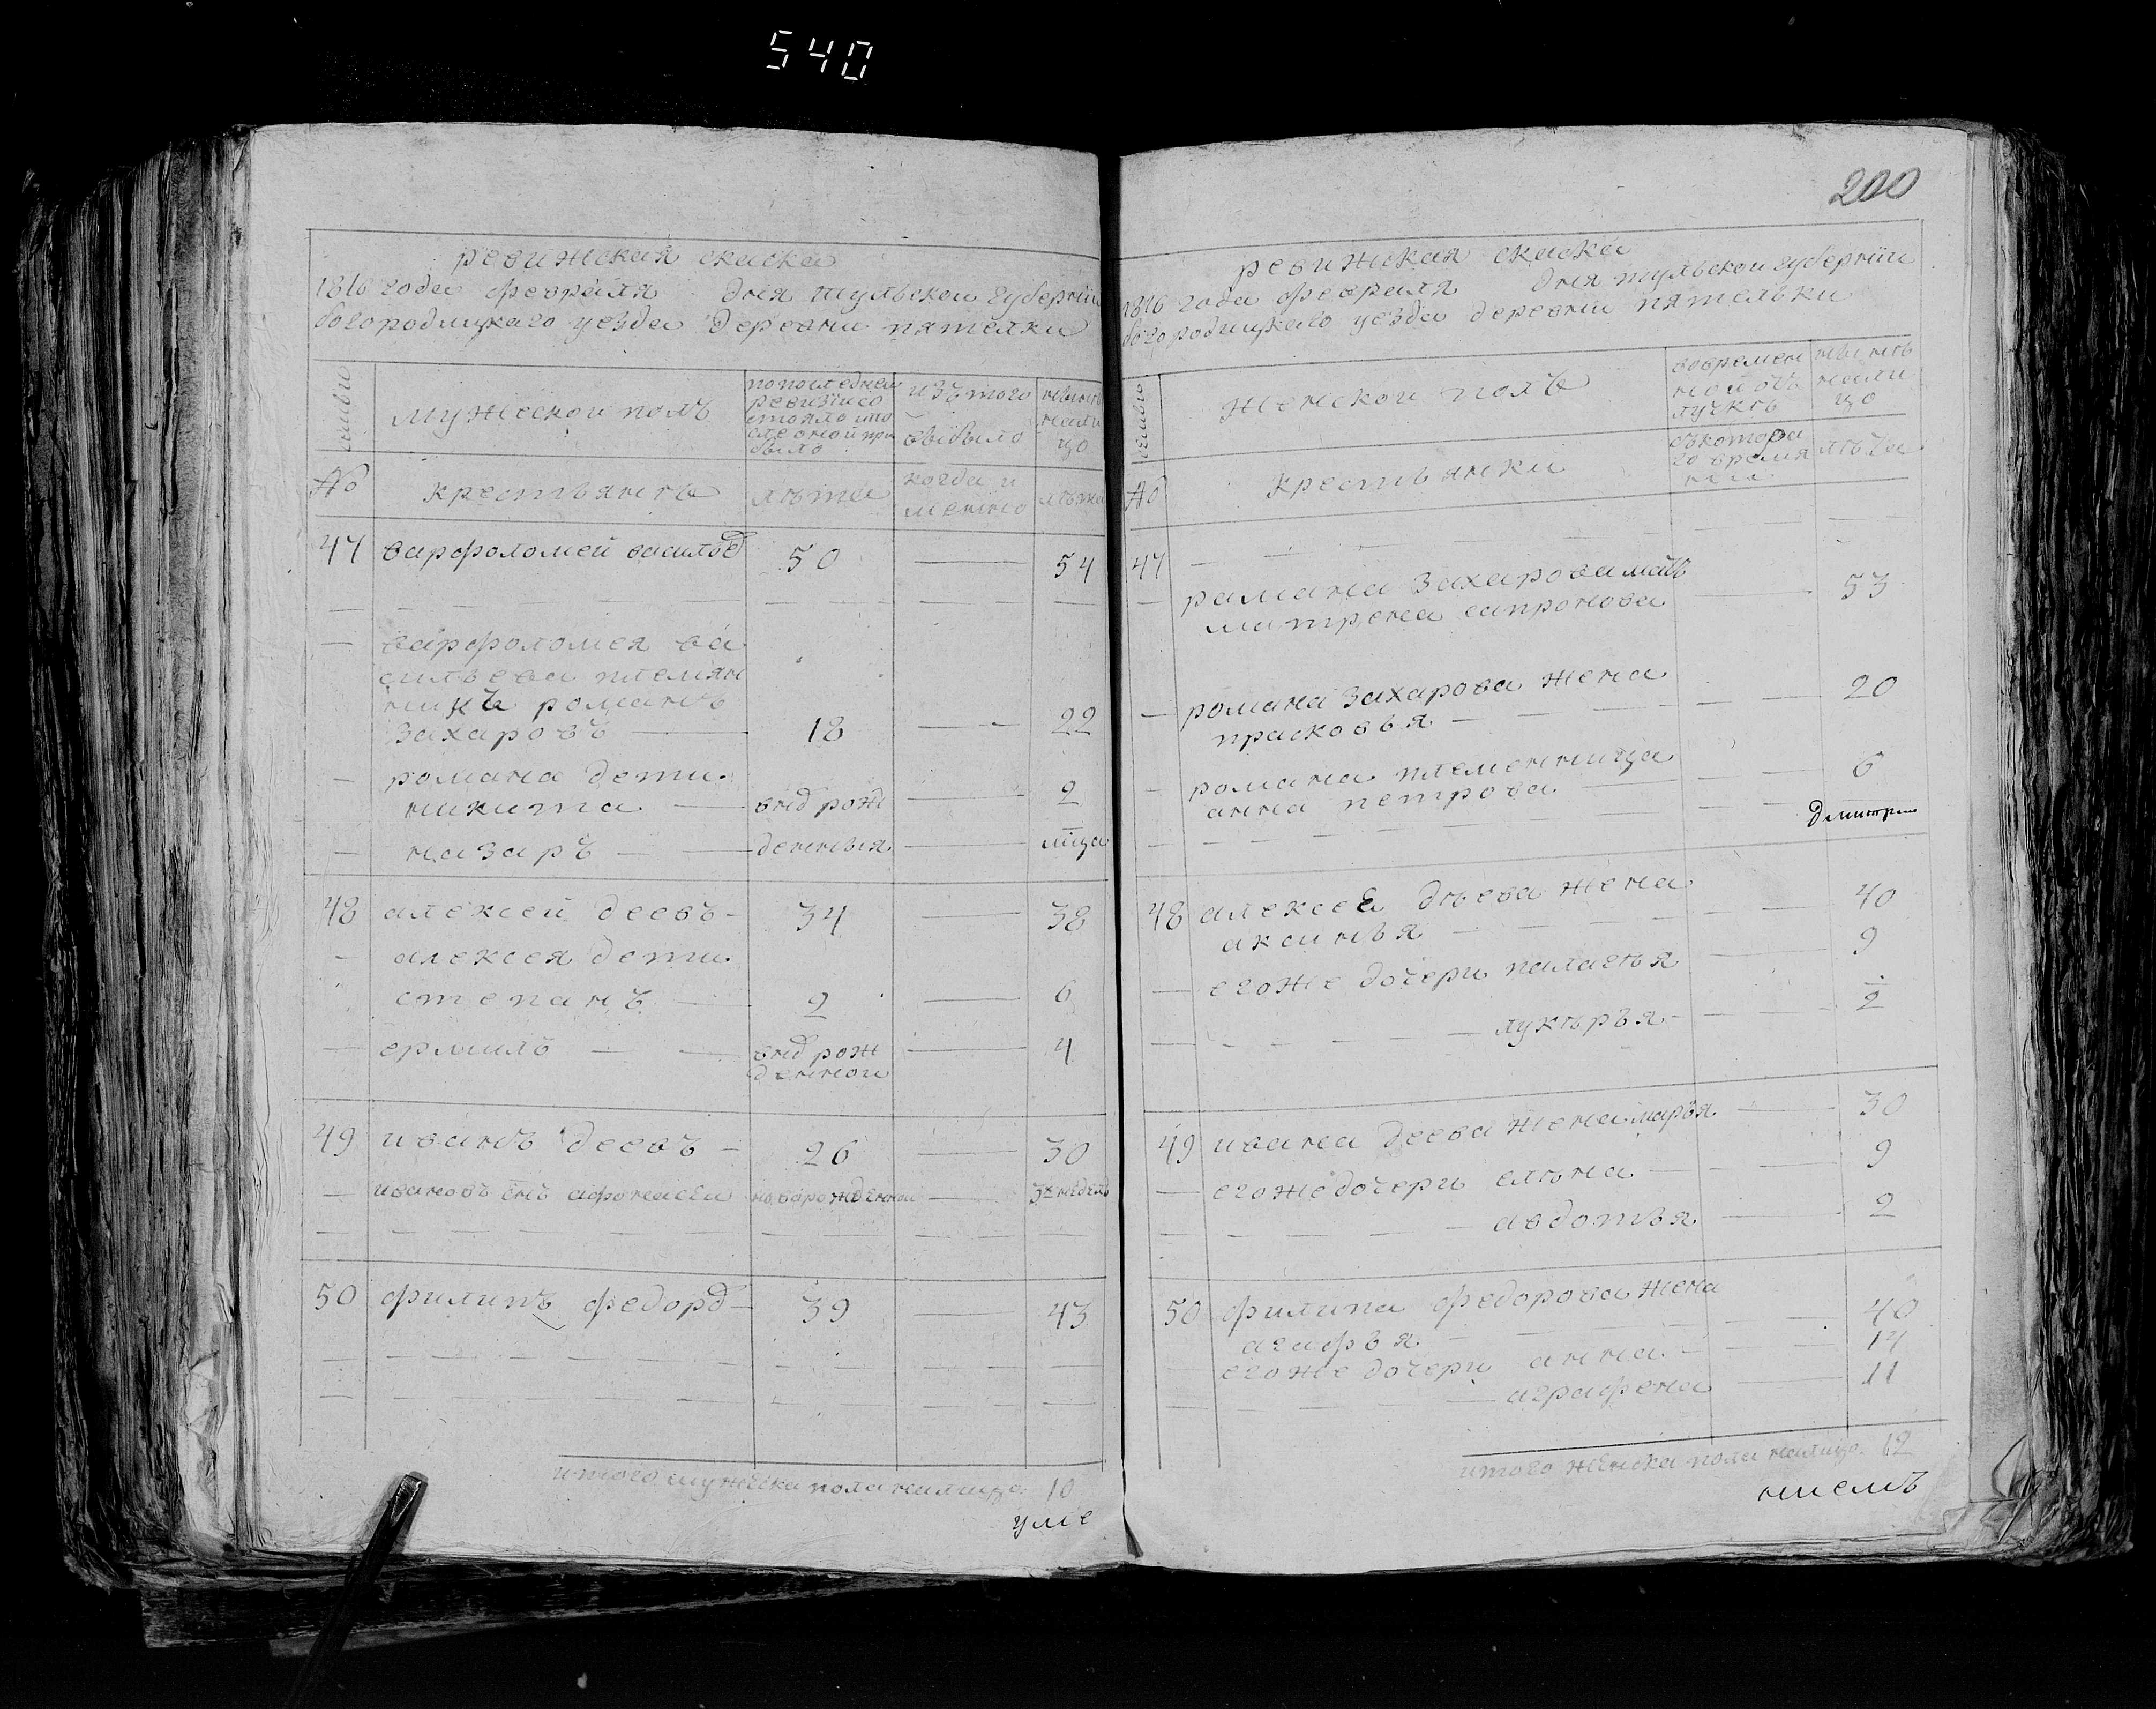 540
ревижская скаска
1816 года февраля дня тульской губернии
богородицкаго уезда деревни пятелки
мужеской полъ
по последней
ревизiи со
стояло и по
сле оной при
было
изъ того
выбыло
ныне
нали
цо
№
крестьянъ
лѣта
когда и
менно
лѣта
47 варфоломей василье 50 54
варфоломея ва
сильева племян
никъ романъ
захаровъ 18 22
романа дети
никита внов рож 2
назаръ денныя мца
48 алексей деевъ 34 38
алексея дети
степанъ 2 6
ермилъ внов рож 4
денной
49 иванъ деевъ 26 30
ивановъ снъ афонасеи новорожденнои 3х недель
50 филипъ федоро 39 43
итого мужеска пола налицо 10
уме
200
ревижская скаска
1816 года февраля дня тульской губернии
богородицкаго уезда деревни пятельки
женской полъ
во времен
ной от
лучке
нынѣ
нали
цо
№
крестьянки
съ котора
го время
ни
лѣта
47
рамана захарова мать
матрена сапронова 53
романа захарова жена 20
прасковья
романа племенница 6
анна петрова
Димитри
48 алексея дѣева жена 40
аксинья
егоже дочери палагея 9
лукѣрья 2
49 ивана деева жена марья 30
егоже дочери елѣна 9
авдотья 2
50 филипа федорова жена 40
агафья
егоже дочери анна 14
аграфена 11
итого женска пола налицо 12
ниемъ